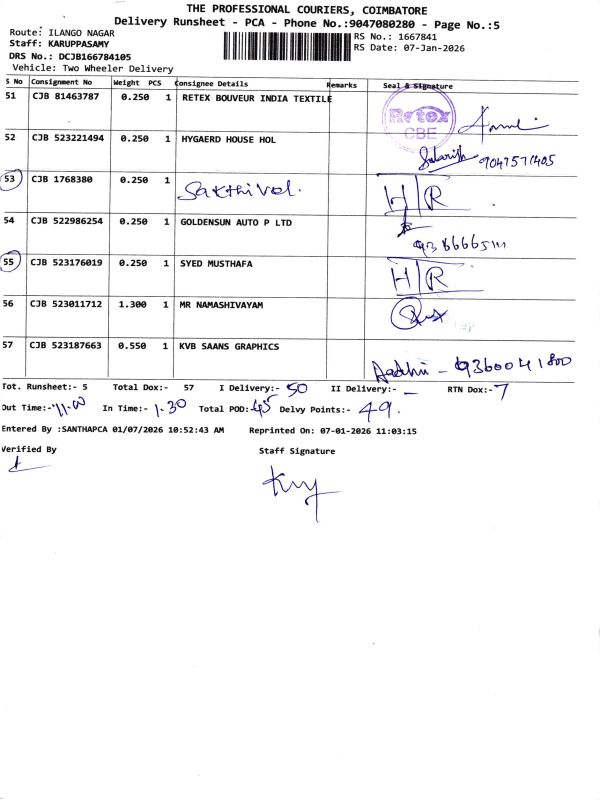 THE PROFESSIONAL COURIERS, COIMBATORE
Delivery Runsheet - PCA - Phone No.:9047080280 - Page No.:5
Route: ILANGO NAGAR
RS No.: 1667841
Staff: KARUPPASAMY
RS Date: 07-Jan-2026
DRS No.: DCJB166784105
Vehicle: Two Wheeler Delivery
S No Consignment No Weight PCS Consignee Details Remarks Seal & Signature
51 CJB 81463787 0.250 1 RETEX BOUVEUR INDIA TEXTILE
Retex
CBE
52 CJB 523221494 0.250 1 HYGAERD HOUSE HOL
9047571405
53 CJB 1768380 0.250 1 Sakthivel. H/R
54 CJB 522986254 0.250 1 GOLDENSUN AUTO P LTD
55 CJB 523176019 0.250 1 SYED MUSTHAFA H/R
56 CJB 523011712 1.300 1 MR NAMASHIVAYAM
57 CJB 523187663 0.550 1 KVB SAANS GRAPHICS
9360041800
Tot. Runsheet:- 5 Total Dox:- 57 I Delivery:- 50 II Delivery:- - RTN Dox:- 7
Out Time:- 11.00 In Time:- 1.30 Total POD:- 45 Delvy Points:- 49.
Entered By :SANTHAPCA 01/07/2026 10:52:43 AM Reprinted On: 07-01-2026 11:03:15
Verified By Staff Signature